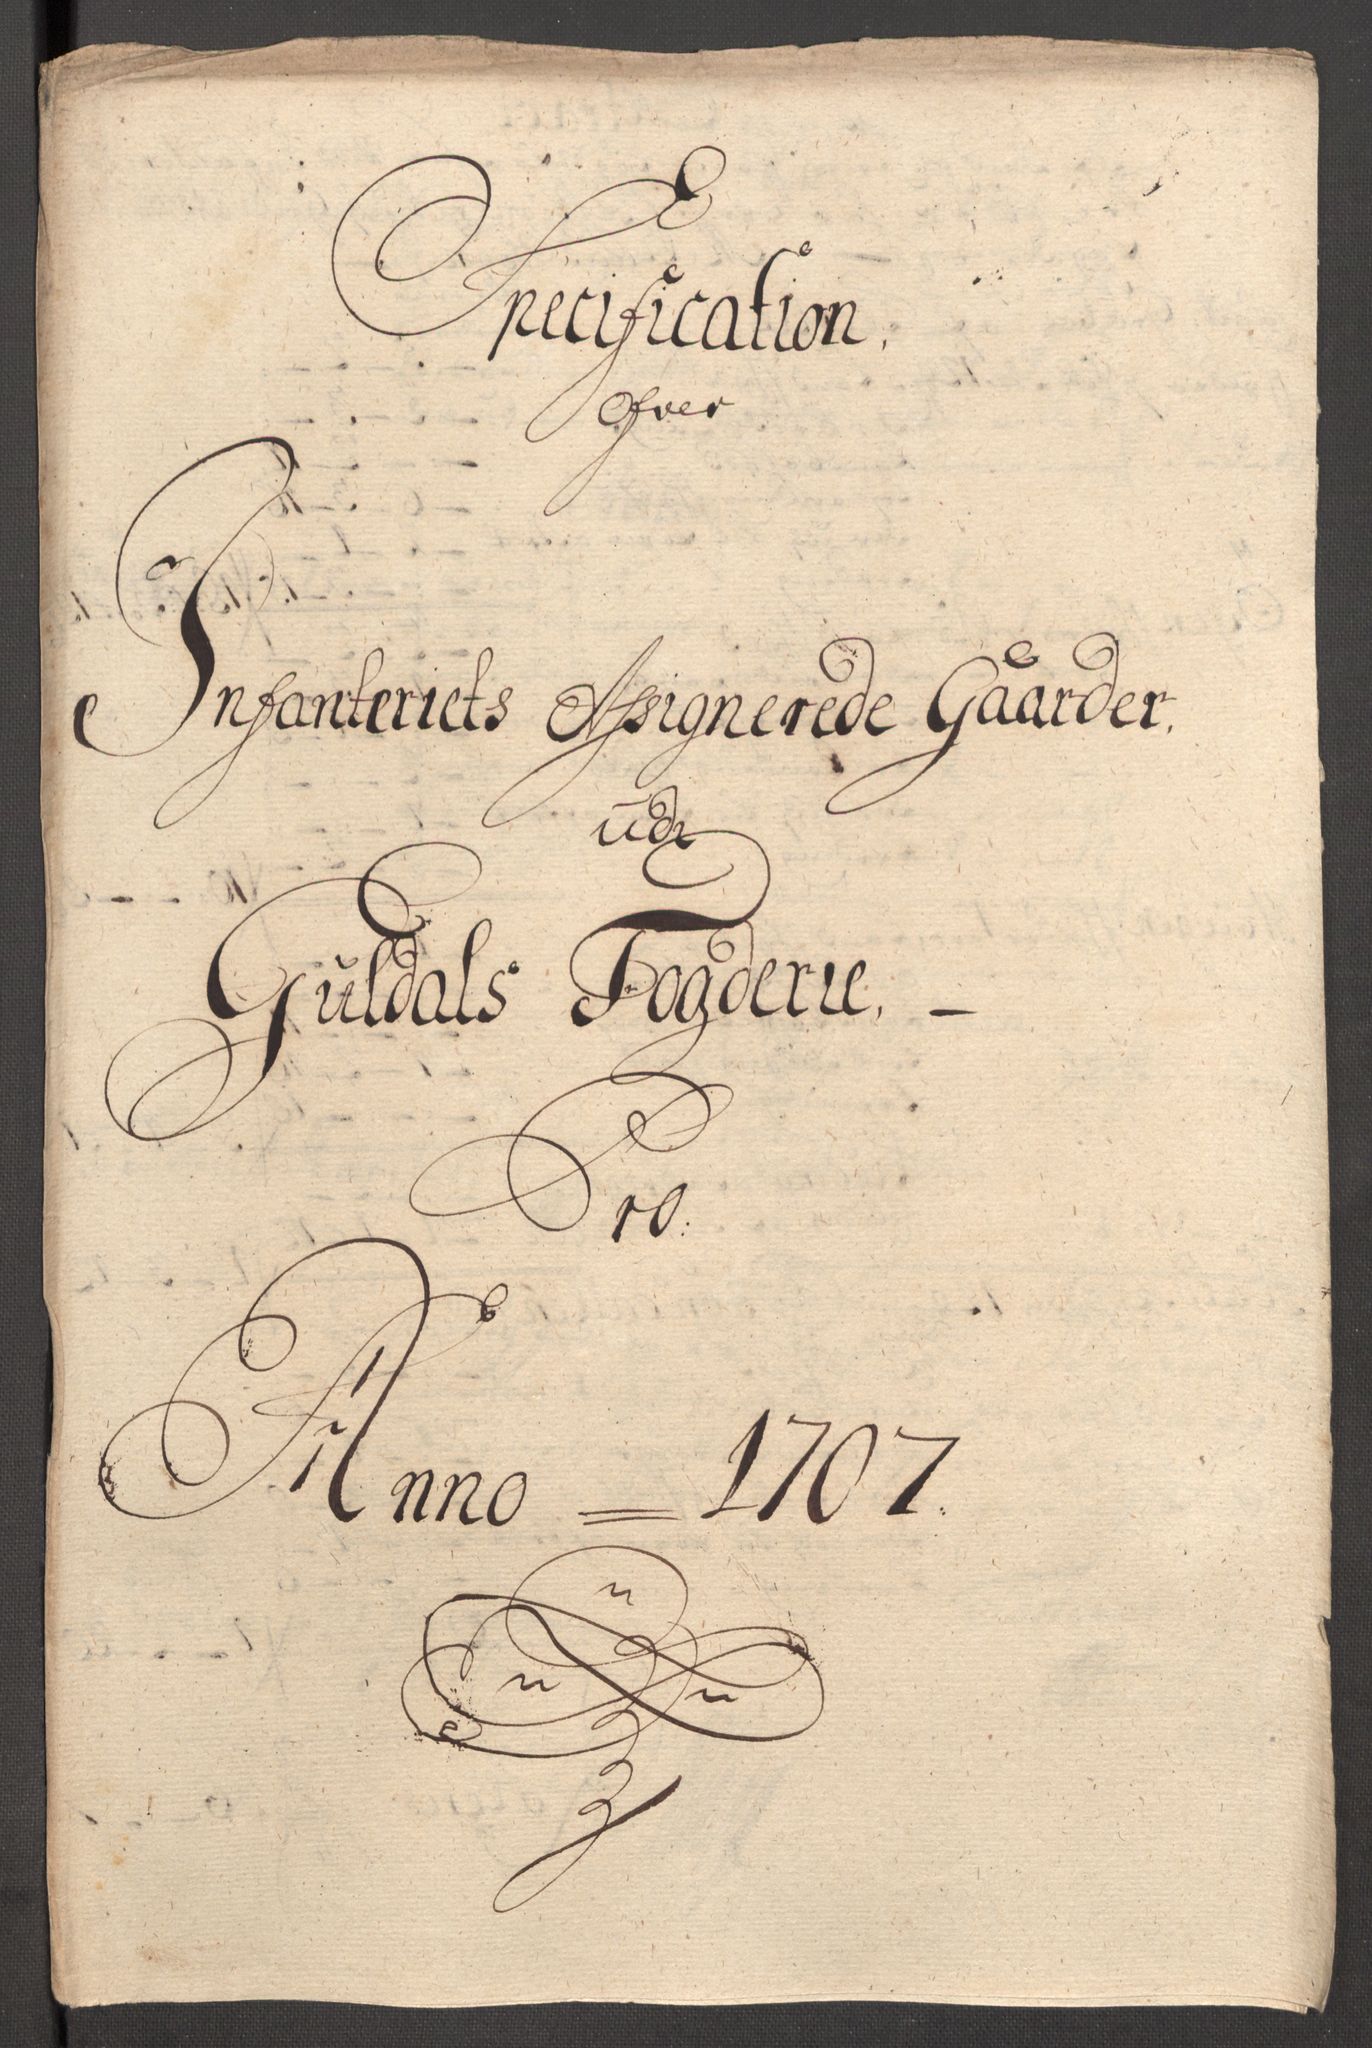 Specification.
Ofver
Infanteriets Assignerede Gaarder.
udj
Guldals Fogderie. —
Pro.
Anno = 1707.